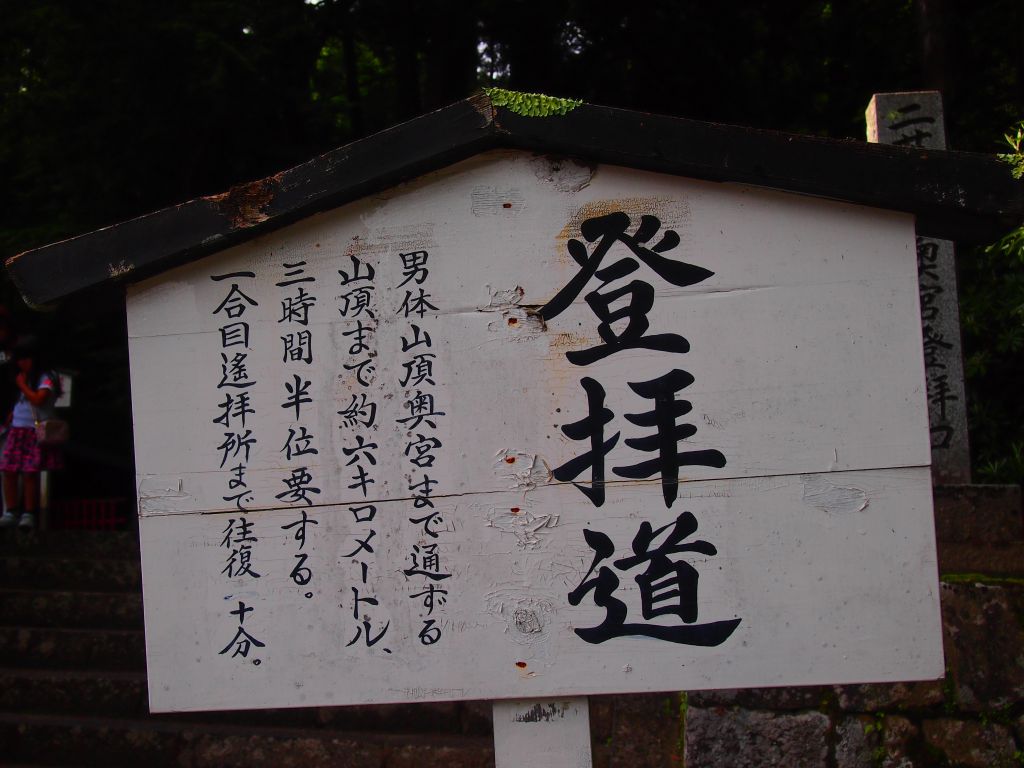 登拝道
男体山頂奥宮まで通ずる
山頂まで約六キロメートル、
三時間半位要する。
一合目遙拝所まで往復十分。
奥宮登拝口